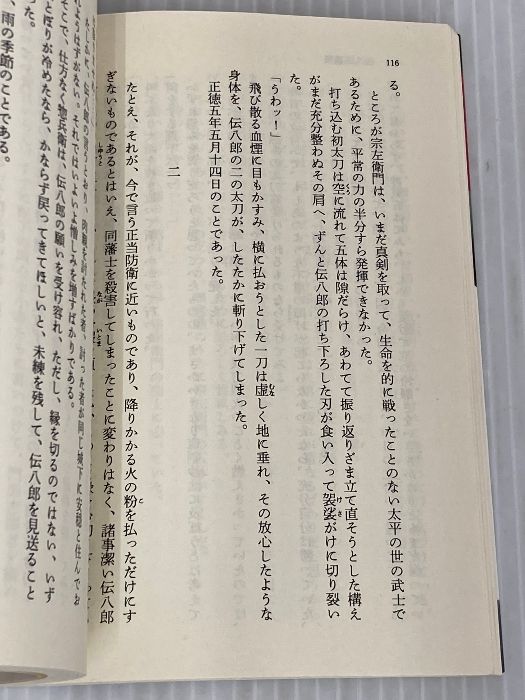 116
る。
ところが宗左衛門は、いまだ真剣を取って、生命を的に戦ったことのない太平の世の武士で
あるために、平常の力の半分すら発揮できなかった。
打ち込む初太刀は空に流れて五体は隙だらけ、あわてて振り返りざま立て直そうとした構え
がまだ充分整わぬその肩へ、ずんと伝八郎の打ち下ろした刃が食い入って袈裟がけに切り裂い
た。
「うわッ！」
飛び散る血煙に目もかすみ、横に払おうとした一刀は虚しく地に垂れ、その放心したような
身体を、伝八郎の二の太刀が、したたかに斬り下げてしまった。
正徳五年五月十四日のことであった。
二
たとえ、それが、今で言う正当防衛に近いものであり、降りかかる火の粉を払っただけにす
ぎないものであるとはいえ、同藩士を殺害してしまったことに変わりはなく、諸事潔い伝八郎
れようはずがない。それではいよいよ憎しみを増すばかりである。
そこで、仕方なく惣兵衛は、伝八郎の願いを受け容れ、ただし、縁を切るのではない、いず
とぼりが冷めたなら、かならず戻ってきてほしいと、未練を残して、伝八郎を見送ること
った。
、雨の季節のことである。